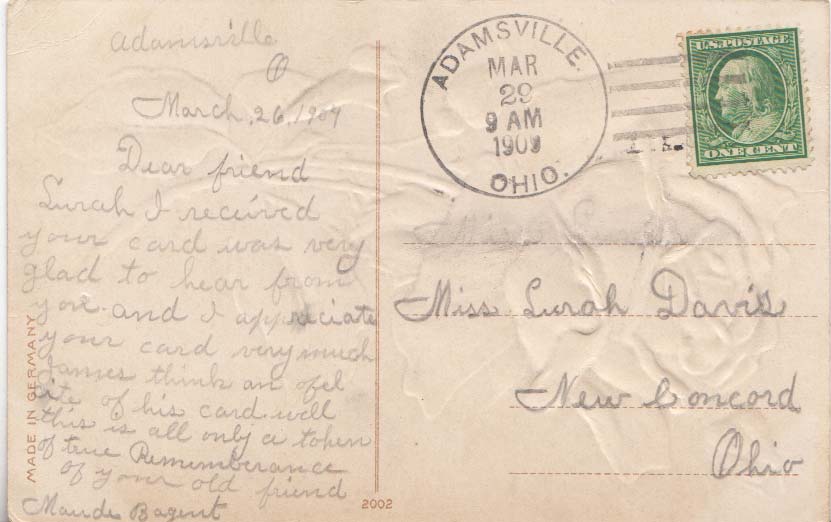 Adamsville
O
March, 26, 1909
Dear friend
Lurah I received
your card was very
glad to hear from
you. and I appreciate
your card very much
James think an ofel
lite of his card. well
this is all only a token
of true Rememberance
of your old friend
Maude Bagent
MADE IN GERMANY
2002
ADAMSVILLE.
MAR
29
9 AM
1909
OHIO.
U.S. POSTAGE
ONE CENT
Miss Lurah Davis
New Concord
Ohio